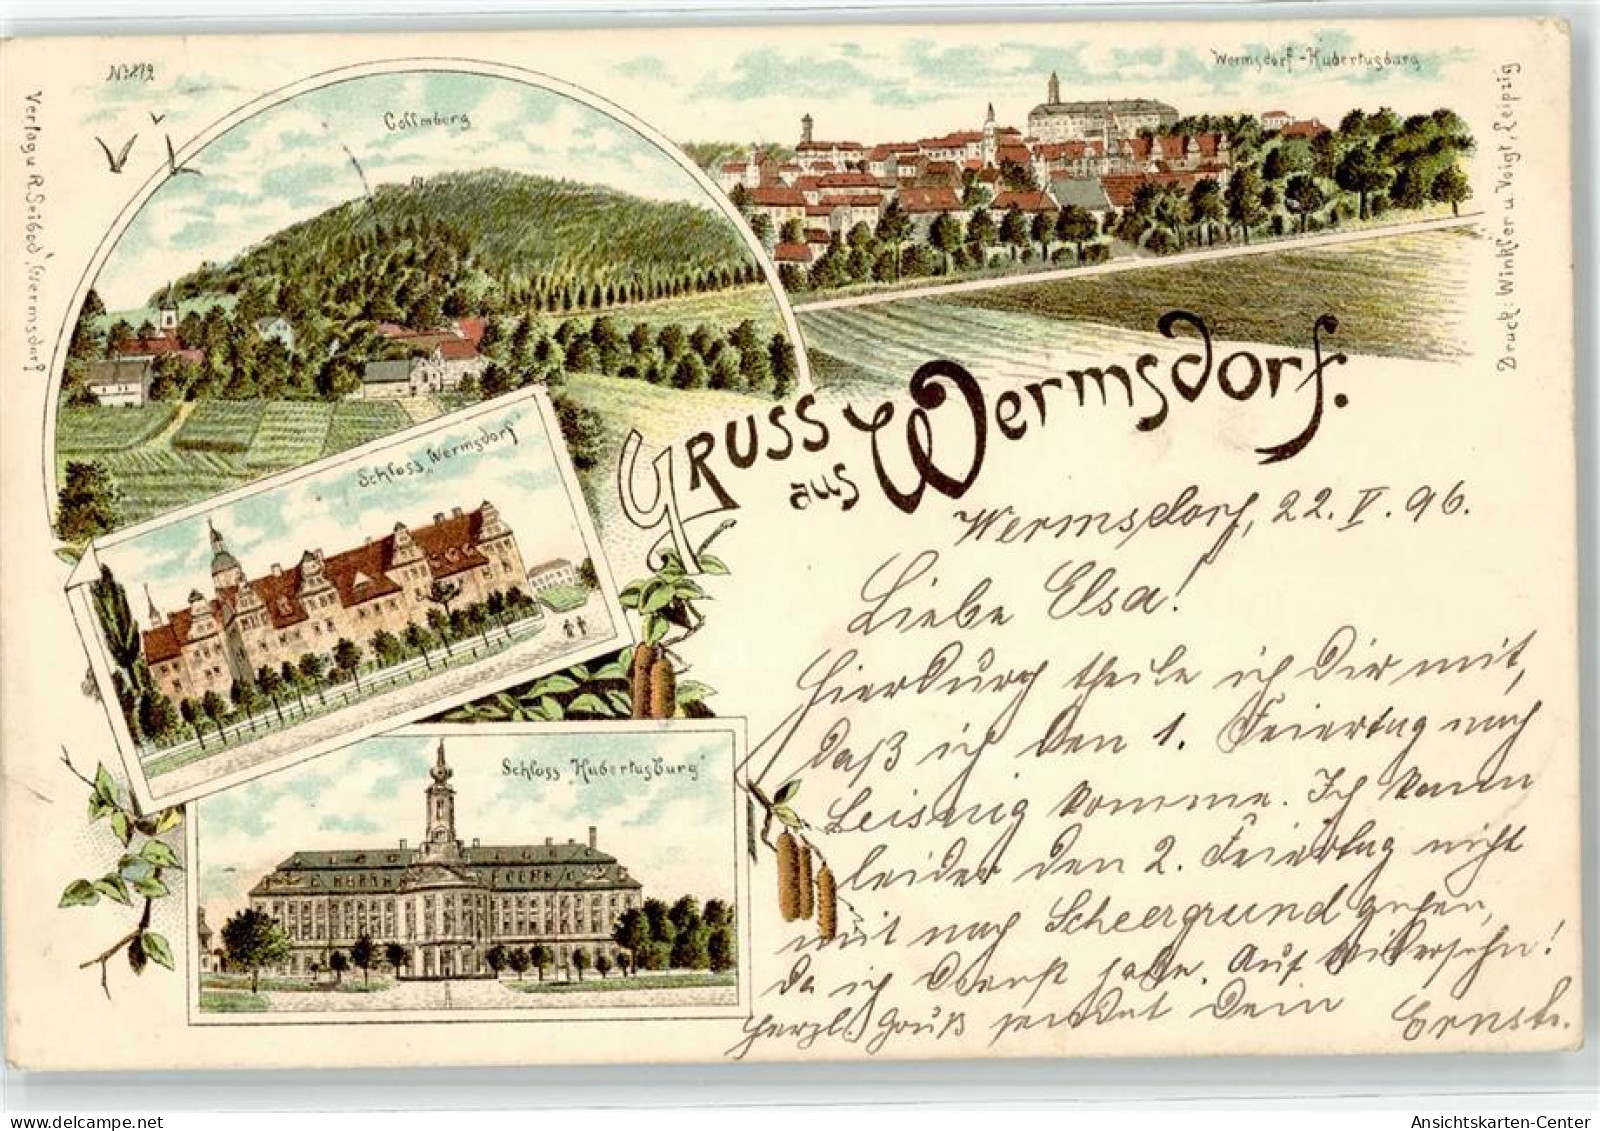 No 272
Verlag v. R. Seibod, Wermsdorf
Collmberg
Wermsdorf - Hubertusburg
Druck: Winkler u. Voigt, Leipzig
Schloss „Wermsdorf"
Schloss „Hubertusburg"
Gruss
aus Wermsdorf.
Wermsdorf, 22. V. 96.
Liebe Elsa!
Hierdurch theile ich Dir mit,
daß ich den 1. Feiertag nach
Leisnig komme. Ich kann
leider den 2. Feiertag nicht
mit nach Scheergrund gehen,
da ich Dienst habe. Auf Wiedersehn!
Herzl. Gruß sendet Dein Ernst.
Ansichtskarten-Center